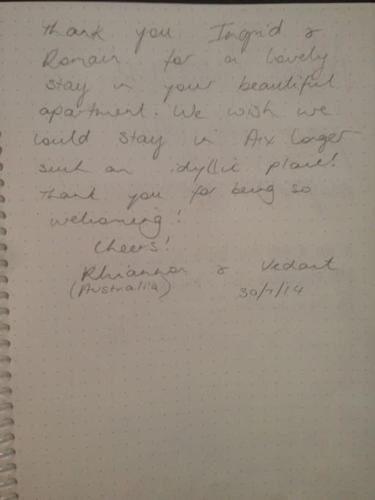 Thank you Ingrid &
Romain for a lovely
stay in your beautiful
apartment. We wish we
could stay in Aix longer
such an idyllic place!
Thank you for being so
welcoming!
Cheers!
Rhiannon & Vedant
(Australia) 30/7/14